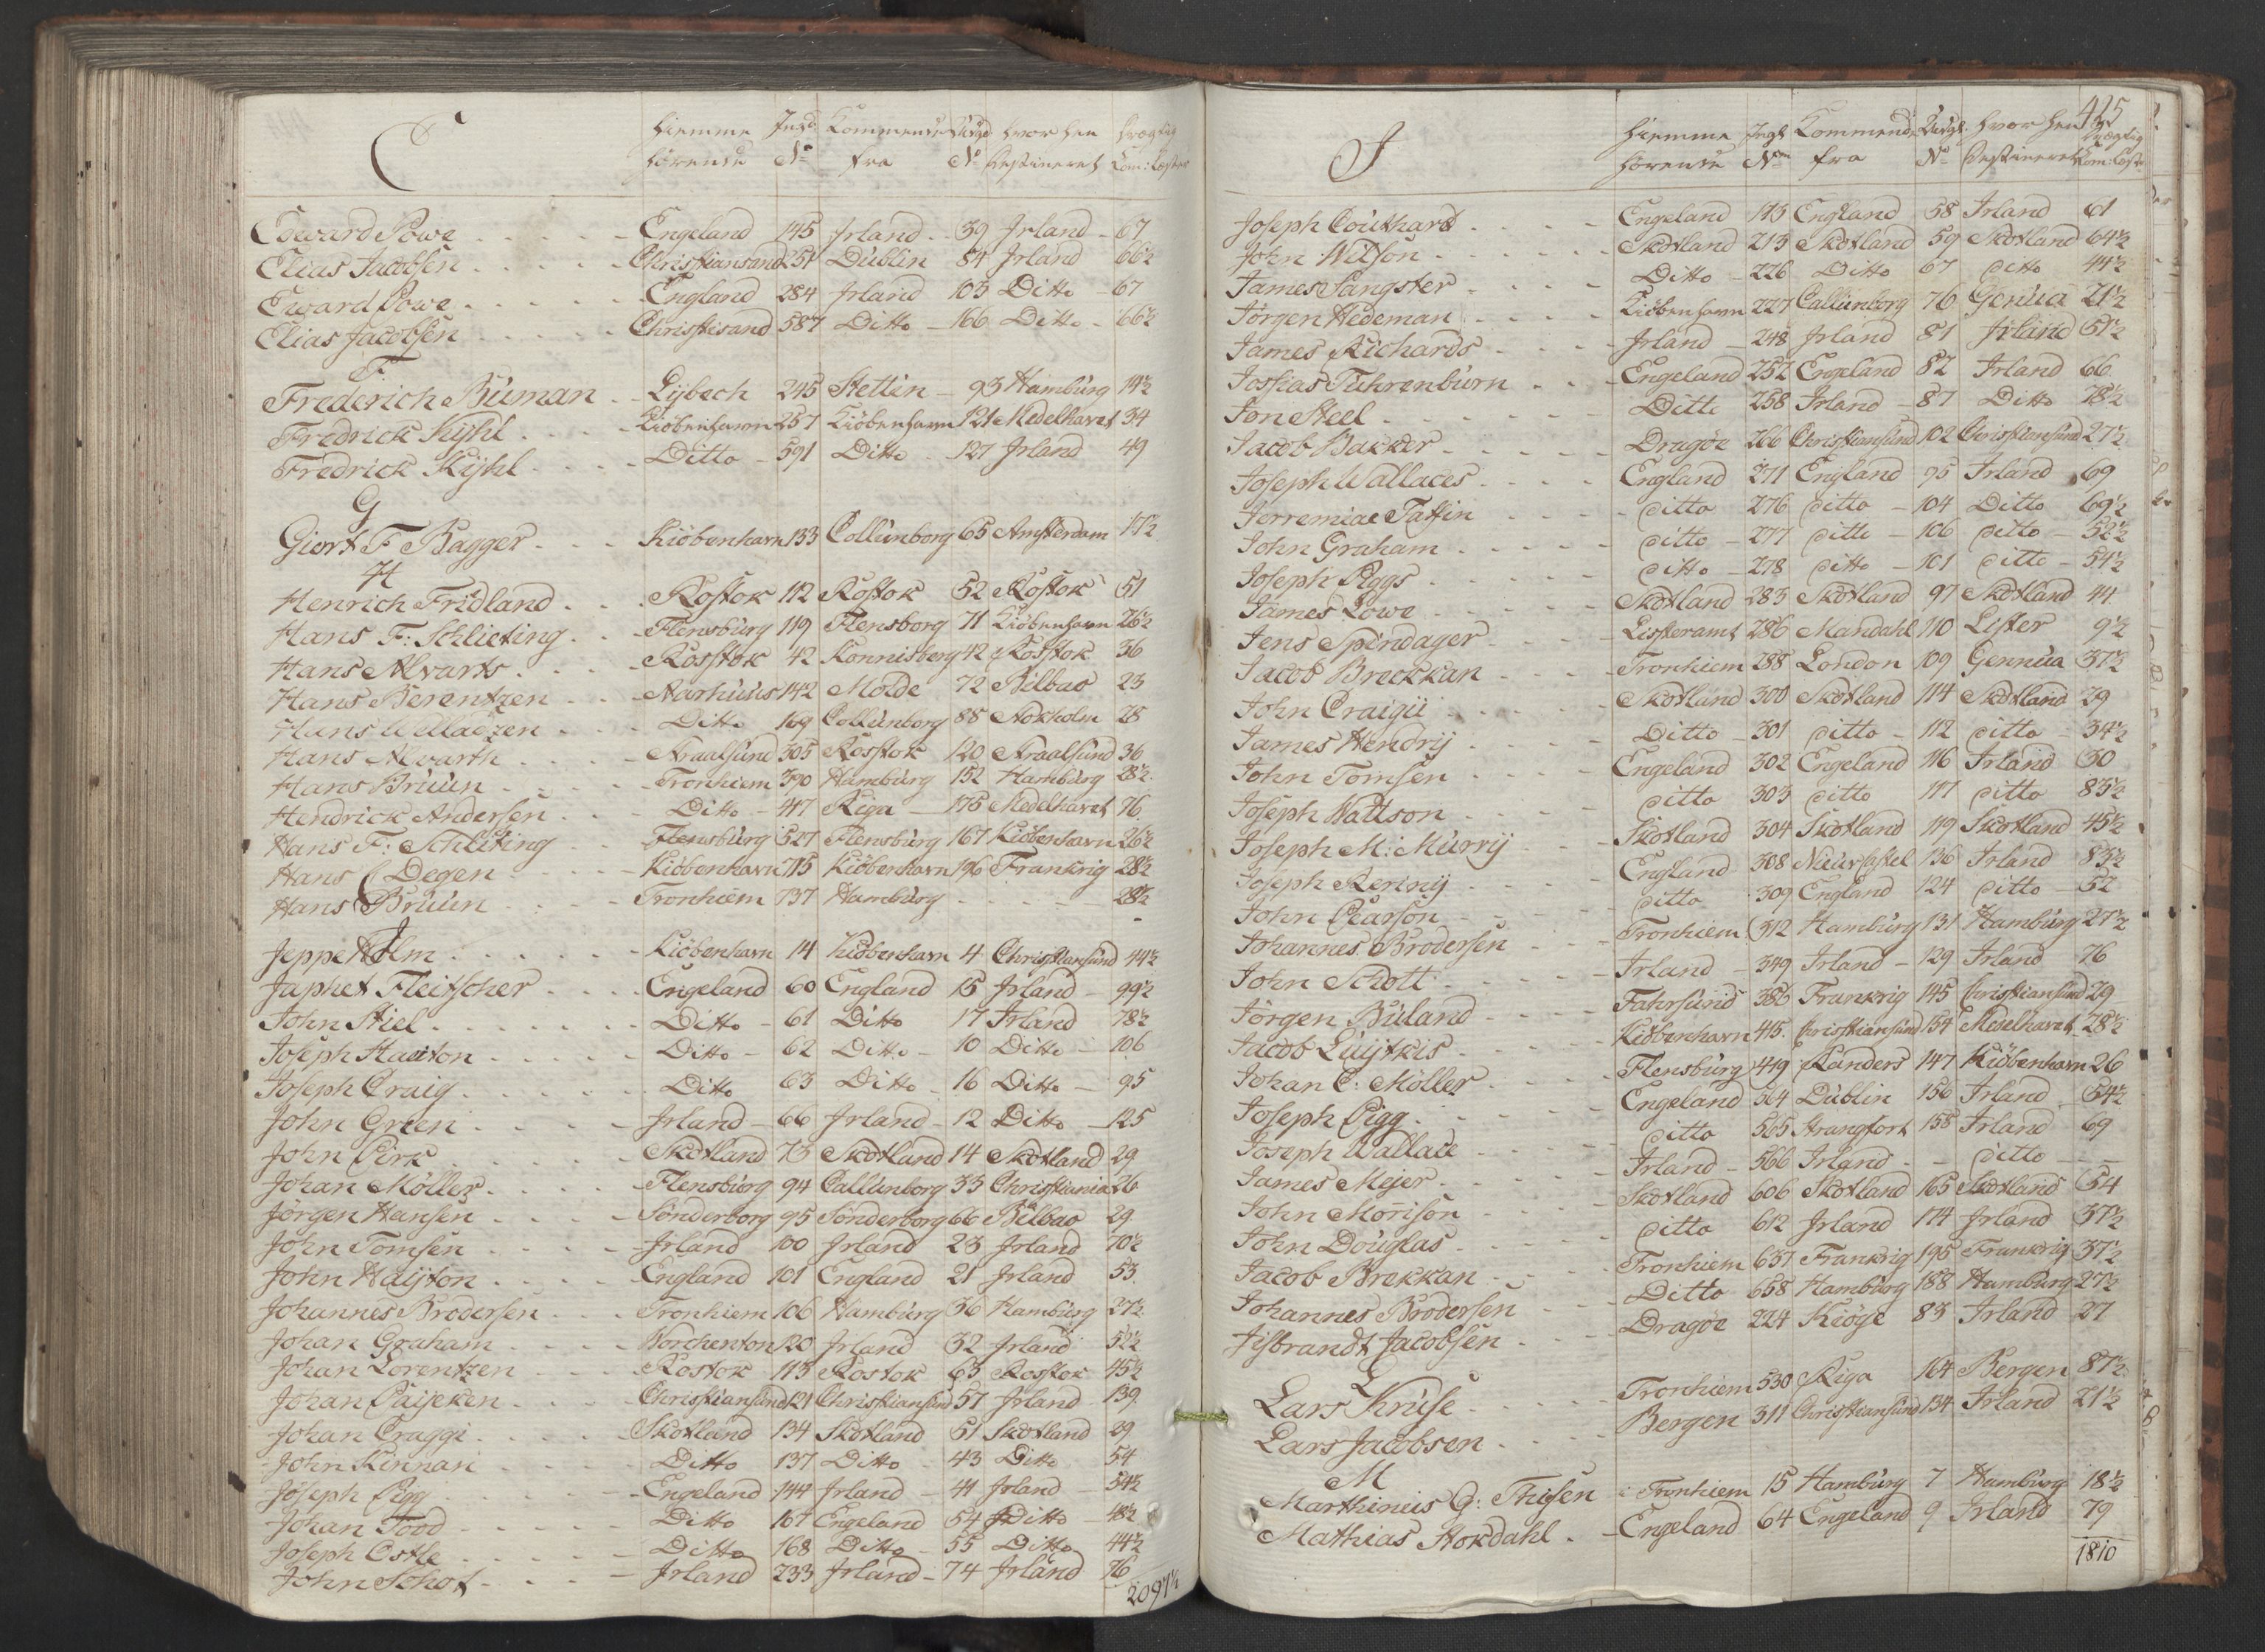 E hiemme Ingd. Kommende Udgd. hvor hen Drægtig
hørende No fra No Destineret Com: Læster
Edward Powe Engeland 145 Irland 39 Irland 67
Elias Jacobsen Christiansand 251 Dublin 84 Irland 66½
Eward Powe England 284 Irland 103 Ditto 67
Elias Jacobsen Christisand 587 Ditto 166 Ditto 66½
F
Frederich Buman Lybech 245 Stettin 93 Hamburg 14½
Fredrick Kyhl Kiöbenhavn 257 Kiöbenhavn 121 Medelhavet 34
Fredrick Kyhl Ditto 591 Ditto 127 Irland 49
G
Giort F Bagger Kiöbenhavn 133 Collünborg 65 Amsterdam 17½
H
Henrich Fridland Rostok 112 Rostok 52 Rostok 51
Hans F: Schlieting Flensburg 119 Flensborg 71 Kiöbenhavn 26½
Hans Alvarts Rostok 42 Konnisberg 42 Rostok 36
Hans Berentzen Aarhuus 142 Molde 72 Bilbao 23
Hans Ditto 169 Collünborg 88 Stokholm 28
Hans Alvarth Straalsund 305 Rostok 120 Straalsund 36
Hans Bruun Tronhiem 390 Hamburg 152 Hamburg 28½
Hendrick Andersen Ditto 447 Riga 175 Medelhavet 76
Hans F: Schliting Flensburg 527 Flensburg 167 Kiöbenhavn 26½
Hans C Degen Kiöbenhavn 715 Kiöbenhavn 196 Frankrig 28½
Hans Bruun Tronhiem 737 Hamburg 28½
J
Jeppe Holm Kiöbenhavn 14 Kiöbenhavn 4 Christiansund 44½
Japhet Fleitscher Engeland 60 England 15 Irland 99½
John Stiel Ditto 61 Ditto 17 Irland 78½
Joseph Ditto 62 Ditto 10 Ditto 106
Joseph Craig Ditto 63 Ditto 16 Ditto 95
John Green Irland 66 Irland 12 Ditto 125
John Cirk Skotland 73 Skotland 14 Skotland 29
Johan Möller Flensburg 94 Callünborg 33 Christiania 26
Jörgen Hansen Sönderborg 95 Sönderborg 66 Bilbao 29
John Tomsen Irland 100 Irland 23 Irland 70½
John Haÿton England 101 England 21 Irland 53
Johannes Brodersen Tronhiem 106 Hamburg 36 Hamburg 27½
Johan Graham Worchenton 120 Irland 32 Irland 52½
Johan Lorentzen Rostok 113 Rostok 63 Rostok 45½
Johan Christiansund 121 Christiansund 57 Irland 139
Johan Craggi Skotland 134 Skotland 51 Skotland 29
John Kinnan Ditto 137 Ditto 43 Ditto 54
Joseph Pigg Engeland 144 Irland 41 Irland 54½
Johan Tood Ditto 167 Engeland 54 Ditto 48½
Joseph Ostle Ditto 168 Ditto 55 Ditto 44½
John Schot Irland 233 Irland 74 Irland 76
2097½
425
J hiemme Ingd. Kommende Udgd. hvor hen Drægtig
hørende No fra No Destineret Com: Læster
Joseph Couthard Engeland 173 England 58 Irland 61
John Wilson Skotland 213 Skotland 59 Skotland 64½
James Sangster Ditto 226 Ditto 67 ditto 44½
Jörgen Hedeman Kiöbenhavn 227 Callünborg 76 Genua 21½
James Richards Irland 248 Irland 81 Irland 51½
Josias Fuhrenburn Engeland 252 Engeland 82 Irland 66
Jon Steel Ditto 258 Irland 87 Ditto 78½
Jacob Backer Dragöe 266 Christiansund 102 Christiansund 27½
Joseph Wallaces England 271 England 95 Irland 69
Jerremiae Taffin ditto 276 ditto 104 Ditto 69½
John Graham ditto 277 ditto 106 ditto 52½
Joseph Piggs ditto 278 ditto 101 ditto 54½
James Lowe Skotland 283 Skotland 97 Skotland 44
Jens Spindager Listeramt 286 Mandahl 110 Lister 9½
Jacob Breckkan Tronhiem 288 London 109 Gennua 37½
John Craigii Skotland 300 Skotland 114 Skotland 29
James Hendrij Ditto 301 ditto 112 ditto 34½
John Tomsen Engeland 302 Engeland 116 Irland 30
Joseph Wattson ditto 303 ditto 117 ditto 83½
Joseph M: Murrij Skotland 304 Skotland 119 Skotland 45½
Joseph England 308 Nieuwcastel 136 Irland 83½
John Pearson ditto 309 England 124 ditto 52
Johannes Brodersen Tronhiem 312 Hamburg 131 Hamburg 27½
John Schott Irland 349 Irland 129 Irland 76
Jörgen Buland Fahrsund 386 Frankrig 145 Christiansund 29
Jacob Luijtkis Kiöbenhavn 415 Christiansund 154 Medelhavet 28½
Johan C: Möller Flensburg 449 Randers 147 Kiöbenhavn 26
Joseph Pigg Engeland 564 Dublin 156 Irland 54½
Joseph Wallace ditto 565 Strangfort 158 Irland 69
James Mejer Irland 566 Irland ditto
John Morison Skotland 606 Skotland 165 Skotland 54
John Douglas ditto 612 Irland 174 Irland 37½
Jacob Brekkan Tronhiem 657 Frankrig 195 Frankrig 37½
Johannes Brodersen Ditto 658 Hamburg 188 Hamburg 27½
Jisbrandt Jacobsen Dragöe 224 Kiöge 83 Irland 27
L
Lars Kruse Tronhiem 530 Riga 164 Bergen 87½
Lars Jacobsen Bergen 311 Christiansund 134 Irland 21½
M
Marthineis G: Thisen Tronhiem 15 Hamburg 7 Hamburg 18½
Mathias Stokdahl Engeland 64 Engeland 9 Irland 79
1810